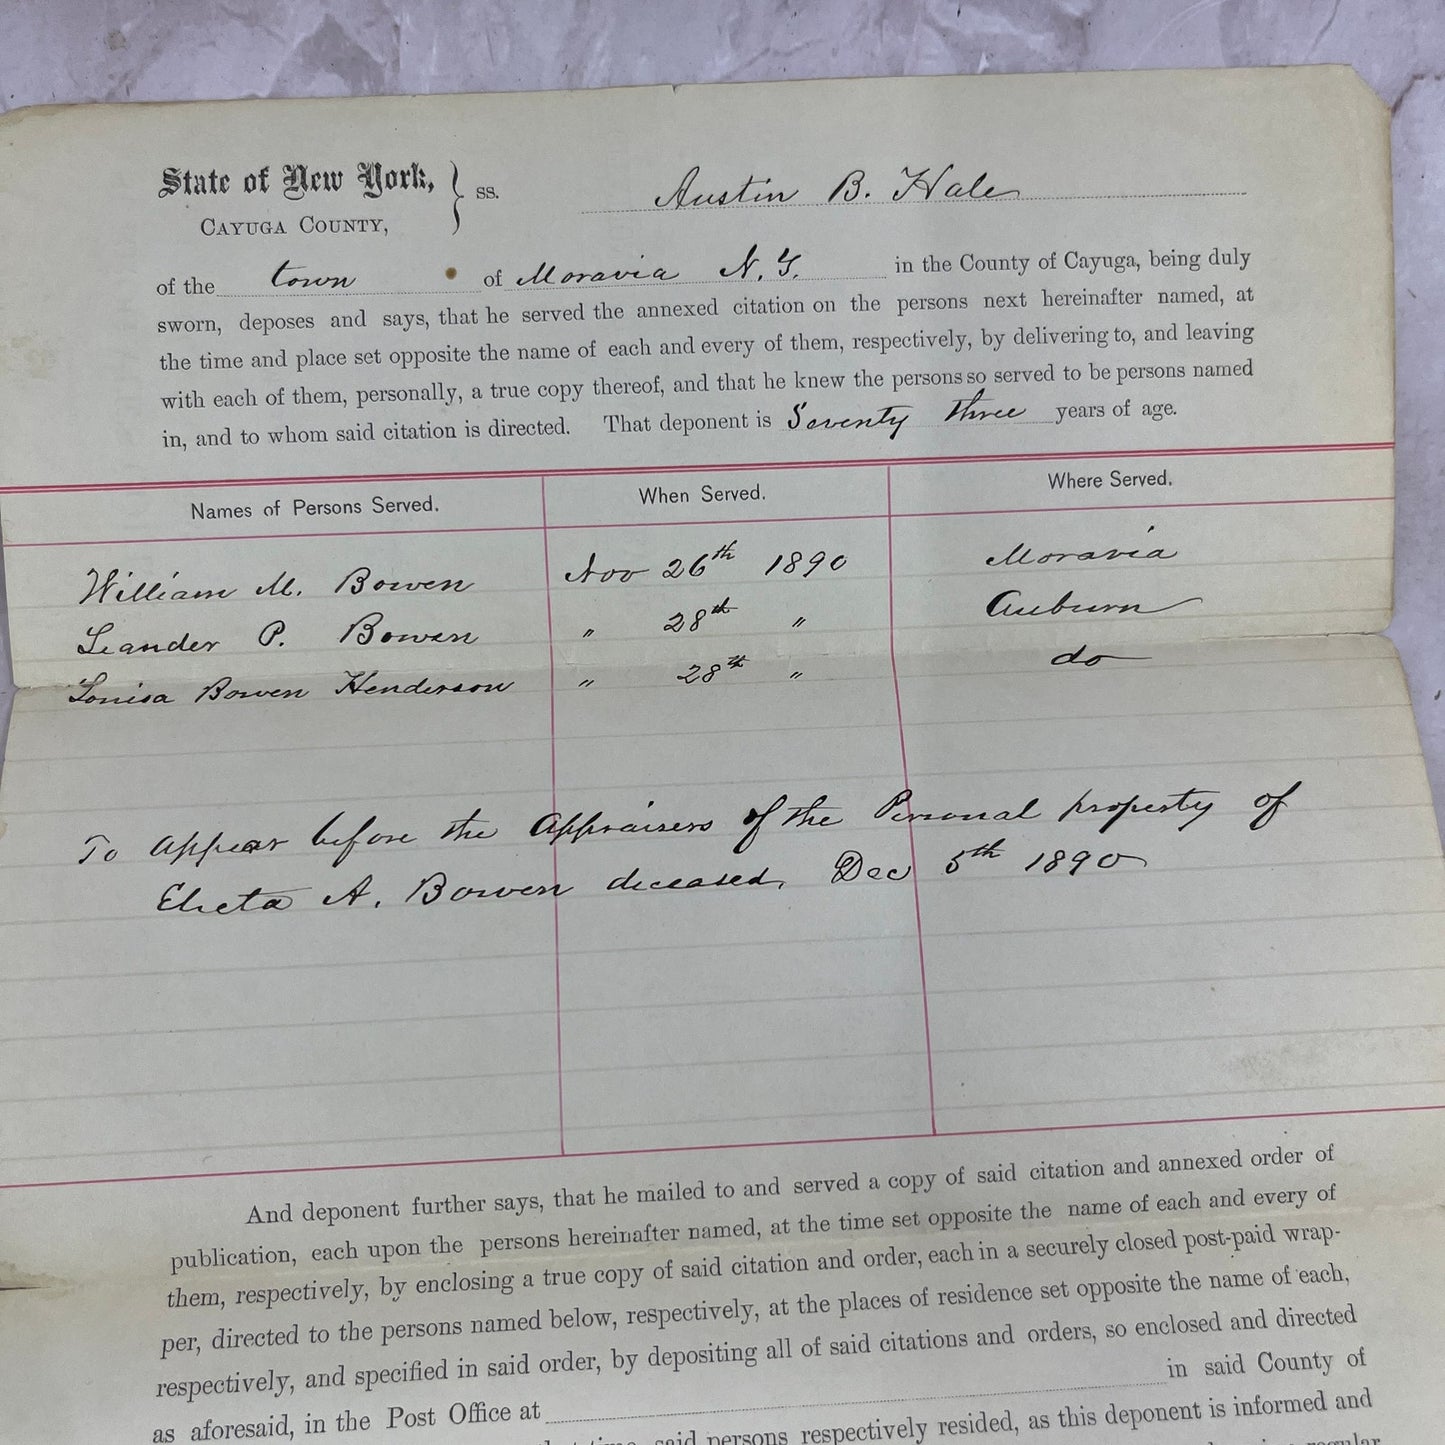 State of New York,
CAYUGA COUNTY, } ss. Austin B. Hale
of the town of Moravia N.Y. in the County of Cayuga, being duly
sworn, deposes and says, that he served the annexed citation on the persons next hereinafter named, at
the time and place set opposite the name of each and every of them, respectively, by delivering to, and leaving
with each of them, personally, a true copy thereof, and that he knew the persons so served to be persons named
in, and to whom said citation is directed. That deponent is Seventy three years of age.
Names of Persons Served. When Served. Where Served.
William M. Bowen Nov 26th 1890 Moravia
Leander P. Bowen " 28th " Auburn
Louisa Bowen Henderson " 28th " do
To appear before the Appraisers of the Personal property of
Electa A. Bowen deceased, Dec 5th 1890
And deponent further says, that he mailed to and served a copy of said citation and annexed order of
publication, each upon the persons hereinafter named, at the time set opposite the name of each and every of
them, respectively, by enclosing a true copy of said citation and order, each in a securely closed post-paid wrap-
per, directed to the persons named below, respectively, at the places of residence set opposite the name of each,
respectively, and specified in said order, by depositing all of said citations and orders, so enclosed and directed
as aforesaid, in the Post Office at in said County of
time said persons respectively resided, as this deponent is informed and
regular